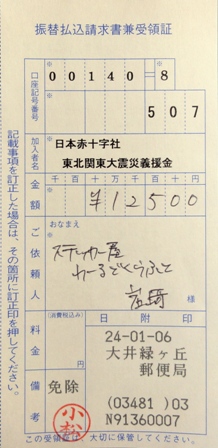 振替払込請求書兼受領証
口座記号番号
00140=8
507
加入者名
日本赤十字社
東北関東大震災義援金
金額
千 百 十 万 千 百 十 円
¥12500
ご依頼人
おなまえ
ステッカー屋
わーるどくらふと
様
料金
(消費税込み)
円
日附印
24-01-06
大井緑ヶ丘
郵便局
(03481)03
N91360007
備考
免除
小松
記載事項を訂正した場合は、その箇所に訂正印を押してください。
この受領証は、大切に保管してください。